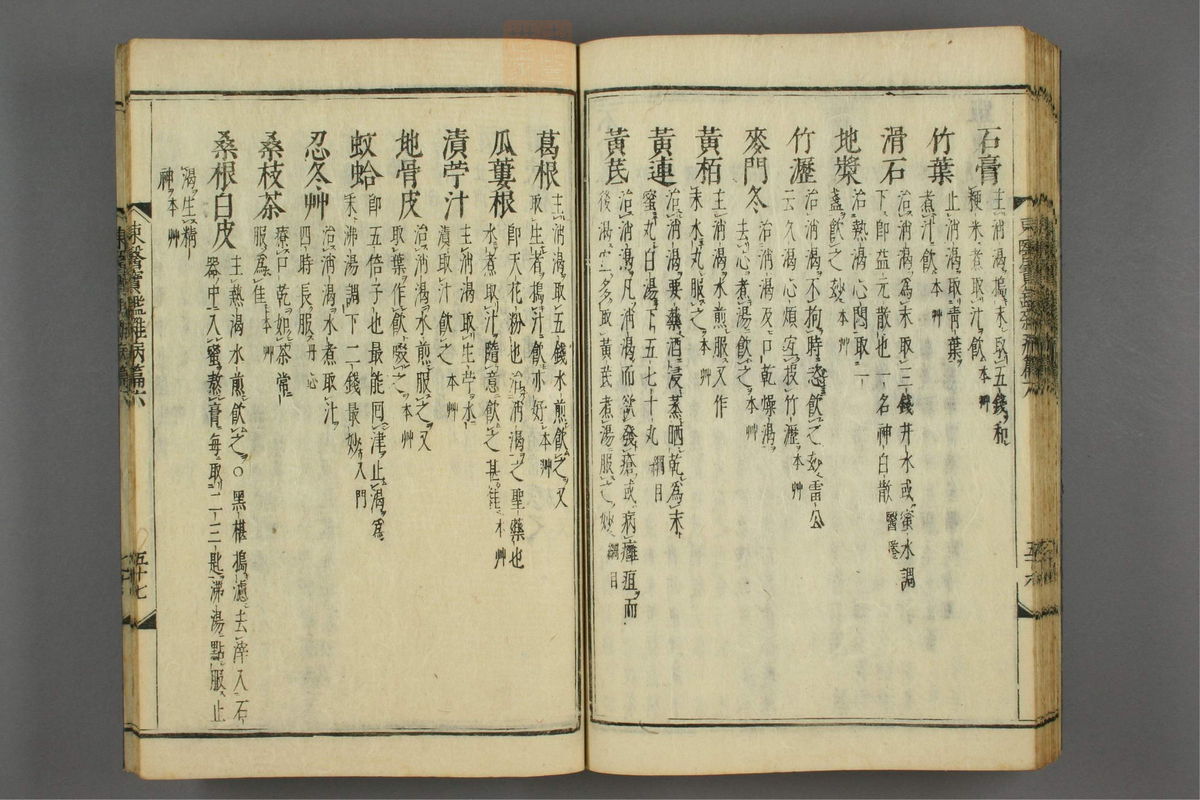 石膏 主消渴搗末取五錢和
粳米煮取汁飲本艸
竹葉 止消渴取青葉
煮汁飲本艸
滑石 治消渴爲末取三錢井水或蜜水調
下卽益元散也一名神白散醫鑑
地漿 治熱渴心悶取一
盞飲之本艸
竹瀝 治消渴不拘時恣飲之妙雷公
云久渴心煩宜投竹瀝本艸
麥門冬 治消渴及口乾燥渴
去心煮湯飲之本艸
黃栢 主消渴水煎服又作
末水丸服之本艸
黃連 治消渴要藥酒浸蒸晒乾爲末
蜜丸白湯下五七十丸綱目
黃芪 治消渴凡消渴而欲發瘡或病癰疽而
後渴宜多取黃芪煮湯服之妙綱目
葛根 主消渴取五錢水煎飲之又
取生者搗汁飲亦好本艸
瓜蔞根 卽天花粉也治消渴之聖藥也
水煮取汁隨意飲之甚佳本艸
漬苧汁 主消渴取生苧水
漬取汁飲之本艸
地骨皮 治消渴水煎服之又
取葉作飲啜之本艸
蚊蛤 卽五倍子也最能回津止渴爲
末沸湯調下二錢最妙入門
忍冬艸 治消渴水煮取汁
四時長服丹心
桑枝茶 療口乾如茶常
服爲佳本艸
桑根白皮 主熱渴水煎飲之○黑椹搗濾去滓入石
器中入蜜熬膏每取二三匙沸湯點服止
渴生精
神本艸
東醫寶鑑雜病篇六
五十七